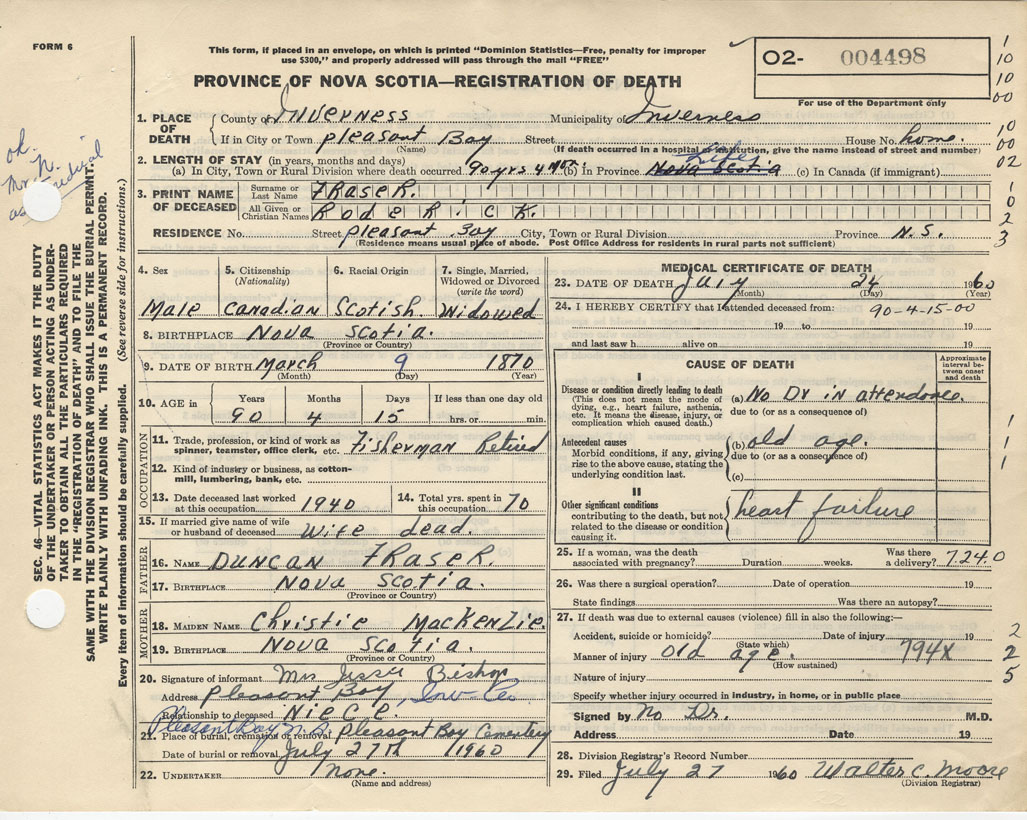 FORM 6
This form, if placed in an envelope, on which is printed "Dominion Statistics—Free, penalty for improper
use $300," and properly addressed will pass through the mail "FREE"
PROVINCE OF NOVA SCOTIA—REGISTRATION OF DEATH
O2- 004498
For use of the Department only
1. PLACE OF DEATH
County of Inverness Municipality of Inverness
If in City or Town pleasant Bay Street House No. home.
(Name) (If death occurred in a hospital or institution, give the name instead of street and number)
2. LENGTH OF STAY (in years, months and days)
(a) In City, Town or Rural Division where death occurred 90 yrs 4 Mos (b) In Province Nova Scotia (c) In Canada (if immigrant)
3. PRINT NAME OF DECEASED
Surname or Last Name FRASER.
All Given or Christian Names Roderick.
RESIDENCE No. Street pleasant Bay City, Town or Rural Division Province N.S.
(Residence means usual place of abode. Post Office Address for residents in rural parts not sufficient)
4. Sex
Male
5. Citizenship (Nationality)
Canadian
6. Racial Origin
Scotish.
7. Single, Married, Widowed or Divorced (write the word)
Widowed
8. BIRTHPLACE Nova Scotia.
(Province or Country)
9. DATE OF BIRTH March 9 1870
(Month) (Day) (Year)
10. AGE in Years Months Days If less than one day old
90 4 15 hrs. or min.
OCCUPATION
11. Trade, profession, or kind of work as spinner, teamster, office clerk, etc. Fisherman Retired
12. Kind of industry or business, as cotton-mill, lumbering, bank, etc.
13. Date deceased last worked at this occupation. 1940
14. Total yrs. spent in this occupation. 70
15. If married give name of wife or husband of deceased Wife dead.
FATHER
16. NAME DUNCAN FRASER.
17. BIRTHPLACE Nova Scotia.
(Province or Country)
MOTHER
18. MAIDEN NAME Christie MacKenzie.
19. BIRTHPLACE Nova Scotia.
(Province or Country)
20. Signature of informant Mrs Jessie Bishop
Address Pleasant Bay, Inv Co
Relationship to deceased Niece.
Pleasant Bay N.S.
21. Place of burial, cremation or removal Pleasant Bay Cemetery
Date of burial or removal July 27th 1960
22. UNDERTAKER none.
(Name and address)
MEDICAL CERTIFICATE OF DEATH
23. DATE OF DEATH July 24 1960
(Month) (Day) (Year)
24. I HEREBY CERTIFY that I attended deceased from: 90-4-15-00
19 to 19
and last saw h alive on 19
CAUSE OF DEATH
Approximate interval between onset and death
I
Disease or condition directly leading to death
(This does not mean the mode of dying, e.g., heart failure, asthenia, etc. It means the disease, injury, or complication which caused death.)
(a) No Dr in attendance.
due to (or as a consequence of)
Antecedent causes
Morbid conditions, if any, giving rise to the above cause, stating the underlying condition last.
(b) old age.
due to (or as a consequence of)
(c)
II
Other significant conditions
contributing to the death, but not related to the disease or condition causing it.
heart failure
25. If a woman, was the death associated with pregnancy? Duration weeks. Was there a delivery? 7.24.0
26. Was there a surgical operation? Date of operation 19
State findings Was there an autopsy?
27. If death was due to external causes (violence) fill in also the following:—
Accident, suicide or homicide? Date of injury 19
(State which)
Manner of injury old age. 794X
(How sustained)
Nature of injury
Specify whether injury occurred in industry, in home, or in public place
Signed by No Dr. M.D.
Address Date 19
28. Division Registrar's Record Number
29. Filed July 27 1960 Walter C. Moore
(Division Registrar)
SEC. 46—VITAL STATISTICS ACT MAKES IT THE DUTY
OF THE UNDERTAKER OR PERSON ACTING AS UNDER-
TAKER TO OBTAIN ALL THE PARTICULARS REQUIRED
IN THE "REGISTRATION OF DEATH" AND TO FILE THE
SAME WITH THE DIVISION REGISTRAR WHO SHALL ISSUE THE BURIAL PERMIT.
WRITE PLAINLY WITH UNFADING INK. THIS IS A PERMANENT RECORD.
Every item of information should be carefully supplied. (See reverse side for instructions.)
ok.
1
10
10
00
10
00
02
1
0
2
3
1
1
1
2
2
5